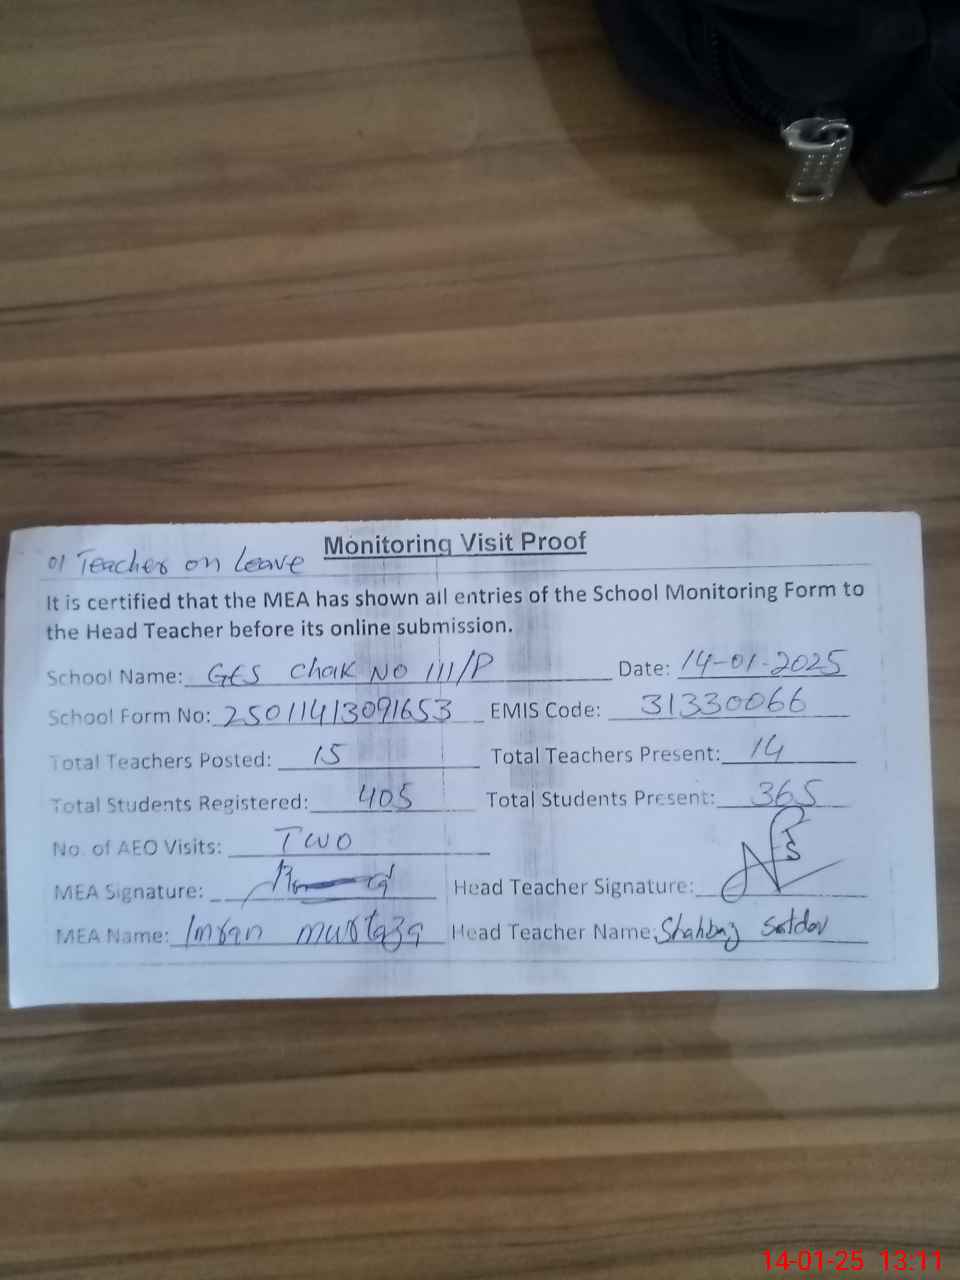 01 Teacher on Leave
Monitoring Visit Proof
It is certified that the MEA has shown all entries of the School Monitoring Form to
the Head Teacher before its online submission.
School Name: GES Chak No 111/P Date: 14-01-2025
School Form No: 25011413091653 EMIS Code: 31330066
Total Teachers Posted: 15 Total Teachers Present: 14
Total Students Registered: 405 Total Students Present: 365
No. of AEO Visits: Two
MEA Signature: Head Teacher Signature:
MEA Name: Imran murtaza Head Teacher Name: Shahbaz
14-01-25 13:11